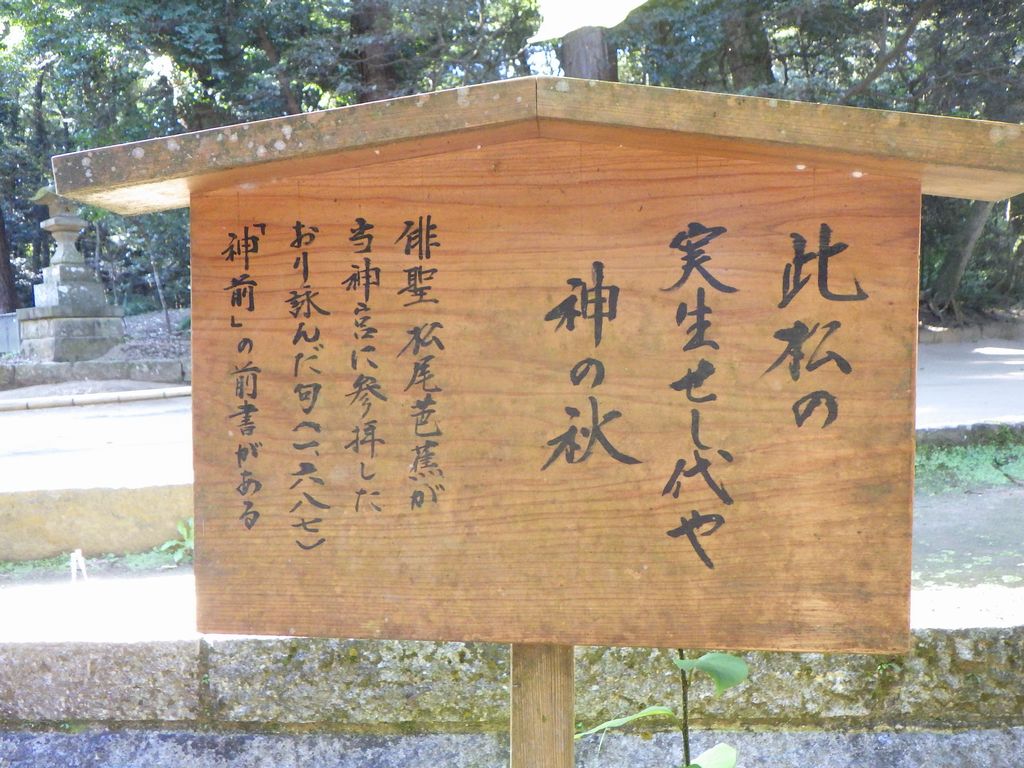 此松の
実生せし代や
神の秋
俳聖松尾芭蕉が
当神宮に参拝した
おり詠んだ句（一、六八七）
「神前」の前書がある